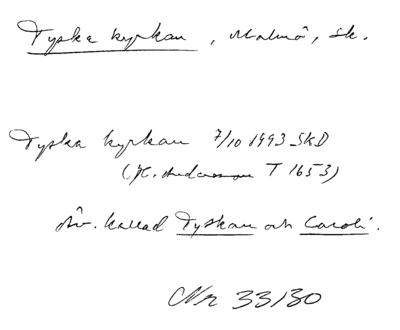 Tyska kyrkan, Malmö, Sk.
Tyska kyrkan 7/10 1993 SKD
(K. Andersson T 1653)
Äv. kallad Tyskan och Caroli.
Nr 33130